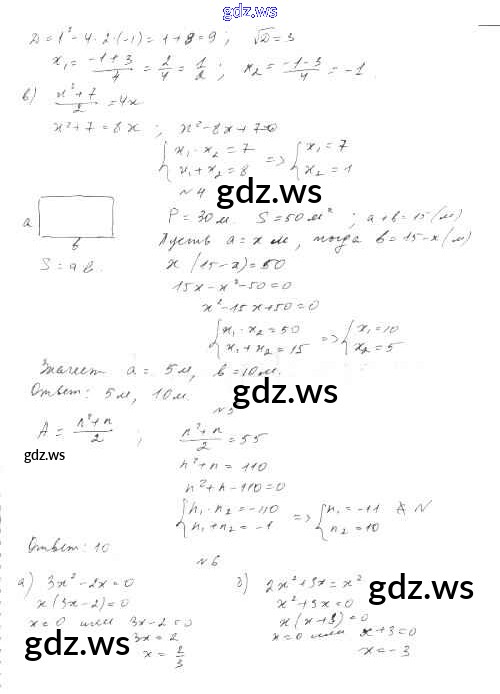 gdz.ws
D=1²-4·2·(-1)=1+8=9; √D=3
x₁=(-1+3)/4=2/4=1/2; x₂=(-1-3)/4=-1.
в) (x²+7)/2=4x
x²+7=8x; x²-8x+7=0
{x₁·x₂=7 x₁+x₂=8 => {x₁=7 x₂=1
gdz.ws
№4
a
P=30м S=50м²; a+b=15(м)
b
Пусть a=x м, тогда b=15-x(м)
S=a·b.
x(15-x)=50
15x-x²-50=0
x²-15x+50=0
{x₁·x₂=50 x₁+x₂=15 => {x₁=10 x₂=5
Значит a=5м, b=10м.
Ответ: 5м, 10м.
gdz.ws
№5
A=(n²+n)/2; (n²+n)/2=55
gdz.ws
n²+n=110
n²+n-110=0
{n₁·n₂=-110 n₁+n₂=-1 => {n₁=-11 ∉ N n₂=10
Ответ: 10.
№6
а) 3x²-2x=0
x(3x-2)=0
x=0 или 3x-2=0
3x=2
x=2/3
2x²+3x=x²
x²+3x=0
x(x+3)=0
x=0 или x+3=0
x=-3
gdz.ws
gdz.ws
gdz.ws